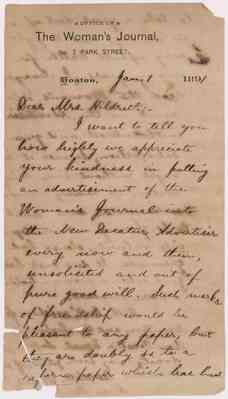 OFFICE OF
The Woman's Journal,
PARK STREET.
Boston, Jan 1 1891
Dear Mrs. Hildreth:-
I want to tell you
how highly we appreciate
your kindness in putting
an advertisement of the
Woman's Journal into
the New Decatur Advertiser
every now and then,
unsolicited and out of
pure good will. Such marks
of friendship would be
pleasant to any paper, but
they are doubly so to a
reform paper which has had